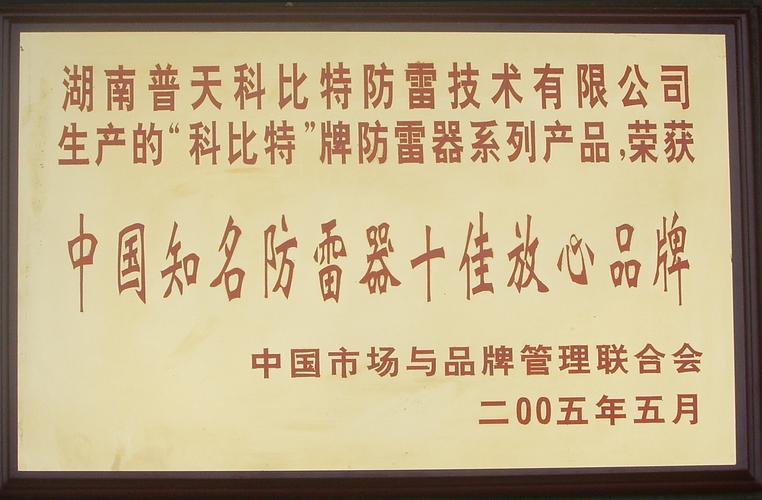 湖南普天科比特防雷技术有限公司
生产的“科比特”牌防雷器系列产品,荣获
中国知名防雷器十佳放心品牌
中国市场与品牌管理联合会
二00五年五月